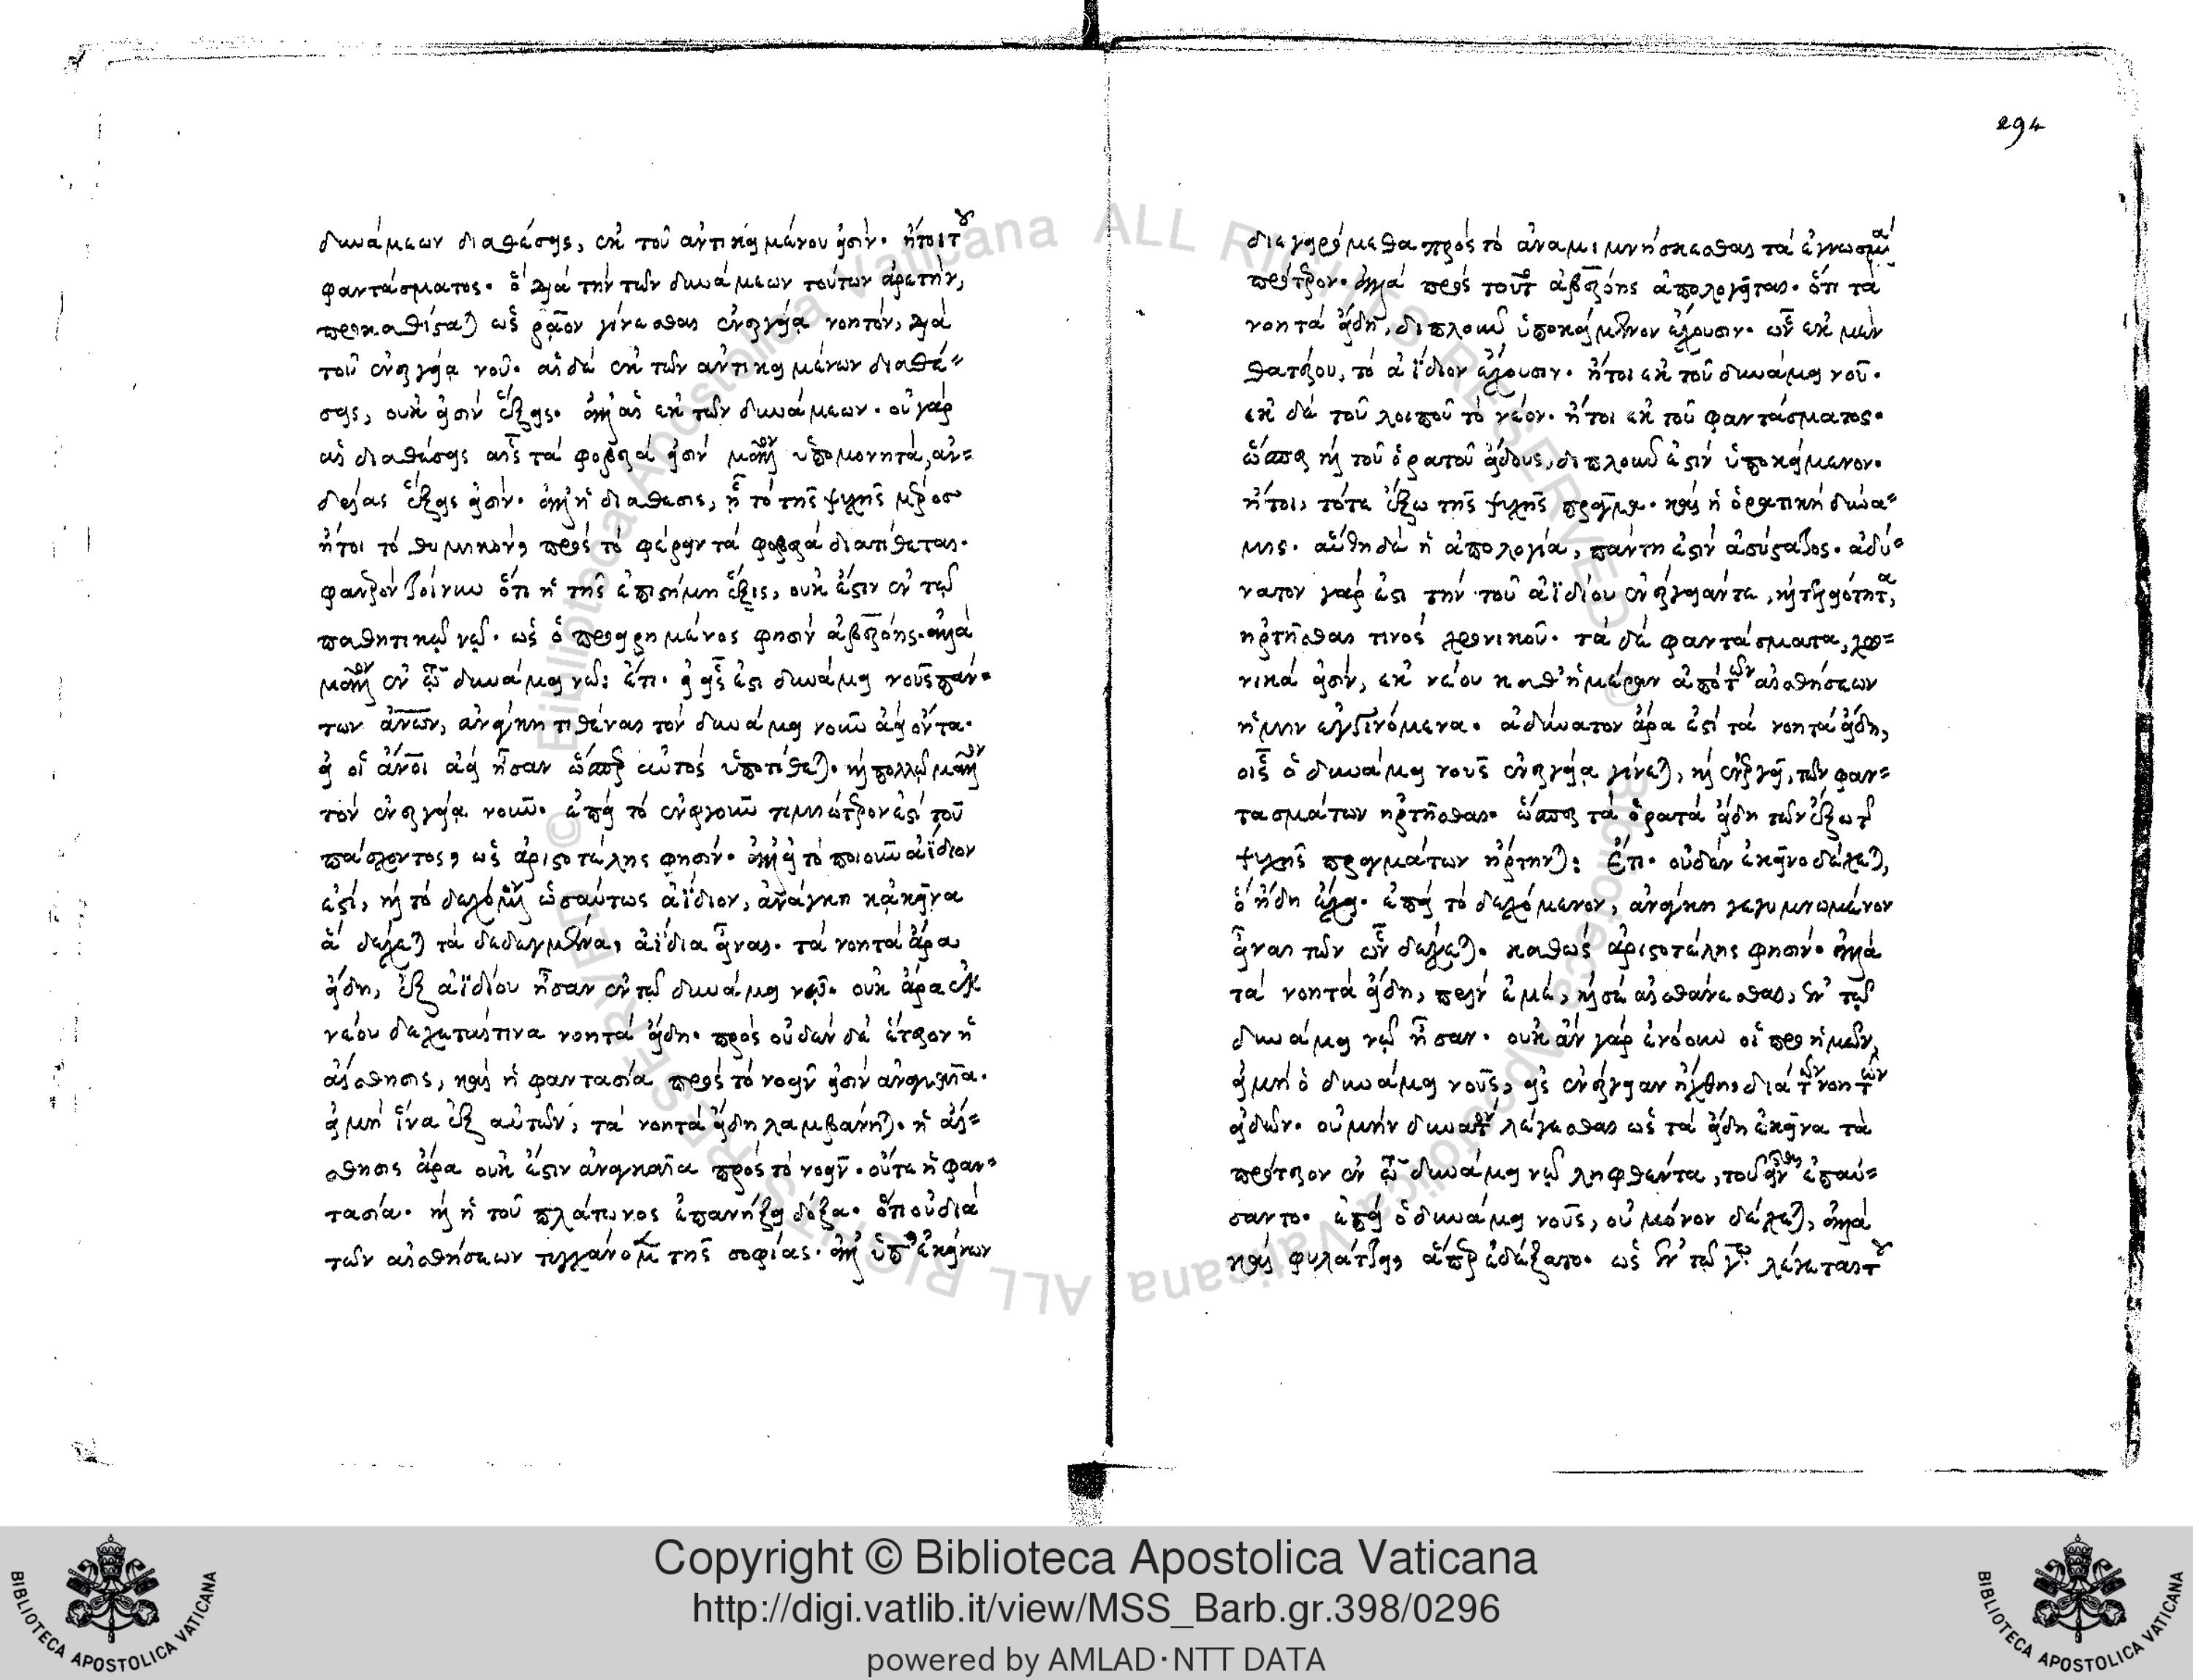 δυνάμεων διαθέσεις, ἐκ τοῦ ἀντικειμένου εἰσίν. ἤτοι τοῦ
φαντάσματος. ὃ διὰ τὴν τῶν δυνάμεων τούτων ἀρετὴν,
προκαθίσταται ὡς ῥᾷον γίνεσθαι ἐνεργείᾳ νοητὸν, διὰ
τοῦ ἐνεργείᾳ νοῦ. αἱ δὲ ἐκ τῶν ἀντικειμένων διαθέ=
σεις, οὐκ εἰσὶν ἕξεις. ἀλλ' αἱ ἐκ τῶν δυνάμεων. οὐ γὰρ
αἱ διαθέσεις αἷς τὰ φοβερά εἰσι μᾶλλον ὑπομονητὰ, ἀν=
δρείας ἕξεις εἰσίν. ἀλλ' ἡ διάθεσις, ᾗ τὸ τῆς ψυχῆς μέρος
ἤτοι τὸ θυμικὸν, πρὸς τὸ φέρειν τὰ φοβερὰ διατίθεται.
φανερὸν τοίνυν ὅτι ἡ τῆς ἐπιστήμη ἕξις, οὐκ ἔστιν ἐν τῷ
παθητικῷ νῷ. ὡς ὁ προειρημένος φησὶν ἀβερόης. ἀλλὰ
μᾶλλον ἐν τῷ δυνάμει νῷ: ἔτι. εἰ εἷς ἐστι δυνάμει νοῦς πάν=
των ἀνων, ἀνάγκη τιθέναι τὸν δυνάμει νοῦν ἀεὶ ὄντα.
εἰ οἱ ἄνοι ἀεὶ ἦσαν ὥσπερ αὐτὸς ὑποτίθεται. καὶ πολλῷ μᾶλλον
τὸν ἐνεργείᾳ νοῦν. ἐπεὶ τὸ ἐνεργοῦν τιμιώτερόν ἐστι τοῦ
πάσχοντος, ὡς ἀριστοτέλης φησίν. ἀλλ' εἰ τὸ ποιοῦν ἀΐδιον
ἐστὶ, καὶ τὸ δεχόμενον ὡσαύτως ἀΐδιον, ἀνάγκη κἀκεῖνα
ἃ δέχεται τὰ δεδεγμένα, ἀΐδια εἶναι. τὰ νοητὰ ἄρα
εἴδη, ἐξ ἀϊδίου ἦσαν ἐν τῷ δυνάμει νῷ. οὐκ ἄρα ἐκ
νέου δέχεται τινα νοητὰ εἴδη. πρὸς οὐδὲν δὲ ἕτερον ἡ
αἴσθησις, καὶ ἡ φαντασία πρὸς τὸ νοεῖν εἰσὶν ἀναγκαῖα.
εἰ μὴ ἵνα ἐξ αὐτῶν, τὰ νοητὰ εἴδη λαμβάνηται. ἡ αἴ=
σθησις ἄρα οὐκ ἔστιν ἀναγκαῖα πρὸς τὸ νοεῖν. οὔτε ἡ φαν=
τασία. καὶ ἡ τοῦ πλάτωνος ἐπανήξει δόξα. ὅτι οὐ διὰ
τῶν αἰσθήσεων τυγχάνομεν τῆς σοφίας. ἀλλ' ὑπ' ἐκείνων
294
διεγειρόμεθα πρὸς τὸ ἀναμιμνήσκεσθαι τὰ ἐγνωσμένα
πρότερον. ἀλλὰ πρὸς τοῦτο ἀβερόης ἀπολογεῖται. ὅτι τὰ
νοητὰ εἴδη, διπλοῦν ὑποκείμενον ἔχουσιν. ὧν ἐκ μὲν
θατέρου, τὸ ἀΐδιον ἔχουσιν. ἤτοι ἐκ τοῦ δυνάμει νοῦ.
ἐκ δὲ τοῦ λοιποῦ τὸ νέον. ἤτοι ἐκ τοῦ φαντάσματος.
ὥσπερ καὶ τοῦ ὁρατοῦ εἴδους, διπλοῦν ἐστὶν ὑποκείμενον.
ἤτοι, τό τε ἔξω τῆς ψυχῆς πρᾶγμα. καὶ ἡ ὁρατικὴ δύνα=
μις. αὕτη δὲ ἡ ἀπολογία, πάντη ἐστὶν ἀσύστατος. ἀδύ=
νατον γάρ ἐστι τὴν τοῦ ἀϊδίου ἐνέργειάν τε, καὶ τελειότητα,
ἠρτῆσθαι τινὸς χρονικοῦ. τὰ δὲ φαντάσματα, χρο=
νικά εἰσιν, ἐκ νέου καθ' ἡμέραν ἀπὸ τῶν αἰσθήσεων
ἡμῖν ἐγγινόμενα. ἀδύνατον ἄρα ἐστὶ τὰ νοητὰ εἴδη,
οἷς ὁ δυνάμει νοῦς ἐνεργείᾳ γίνεται, καὶ ἐνεργεῖ, τῶν φαν=
τασμάτων ἠρτῆσθαι. ὥσπερ τὰ ὁρατὰ εἴδη τῶν ἔξω τῆς
ψυχῆς πραγμάτων ἤρτηνται: ἔτι. οὐδὲν ἐκεῖνο δέχεται,
ὃ ἤδη ἔχει. ἐπεὶ τὸ δεχόμενον, ἀνάγκη γεγυμνωμένον
εἶναι τῶν ὧν δέχεται. καθὼς ἀριστοτέλης φησίν. ἀλλὰ
τὰ νοητὰ εἴδη, πρὶν ἐμὲ, καὶ σὲ αἰσθάνεσθαι, ἐν τῷ
δυνάμει νῷ ἦσαν. οὐκ ἂν γὰρ ἐνόουν οἱ πρὸ ἡμῶν,
εἰ μὴ ὁ δυνάμει νοῦς, εἰς ἐνέργειαν ἤχθη διὰ τῶν νοητῶν
εἰδῶν. οὐ μὴν δυνατὸν λέγεσθαι ὡς τὰ εἴδη ἐκεῖνα τὰ
πρότερον ἐν τῷ δυνάμει νῷ ληφθέντα, τοῦ εἶναι ἐπαύ=
σαντο. ἐπεὶ ὁ δυνάμει νοῦς, οὐ μόνον δέχεται, ἀλλὰ
καὶ φυλάττει, ἅπερ ἐδέξατο. ὡς ἐν τῷ γ͵ῳ λέγεται τοῦ
Copyright © Biblioteca Apostolica Vaticana
http://digi.vatlib.it/view/MSS_Barb.gr.398/0296
powered by AMLAD·NTT DATA